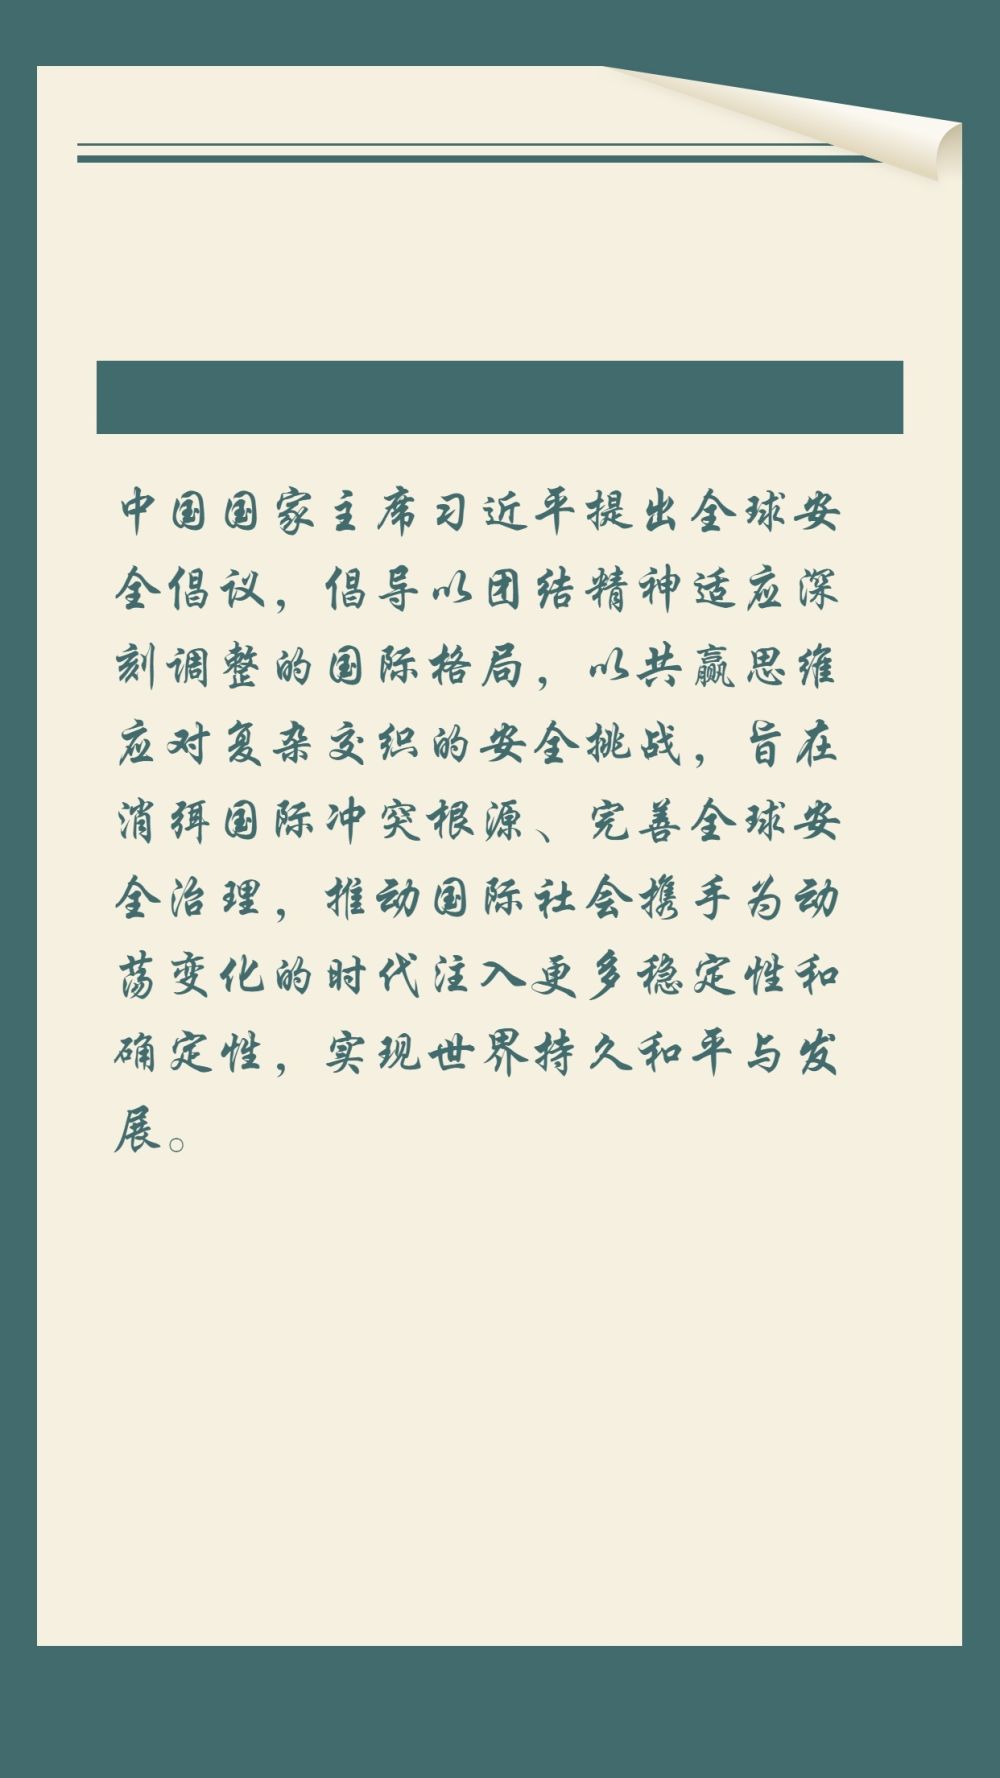 中国国家主席习近平提出全球安
全倡议，倡导以团结精神适应深
刻调整的国际格局，以共赢思维
应对复杂交织的安全挑战，旨在
消弭国际冲突根源、完善全球安
全治理，推动国际社会携手为动
荡变化的时代注入更多稳定性和
确定性，实现世界持久和平与发
展。